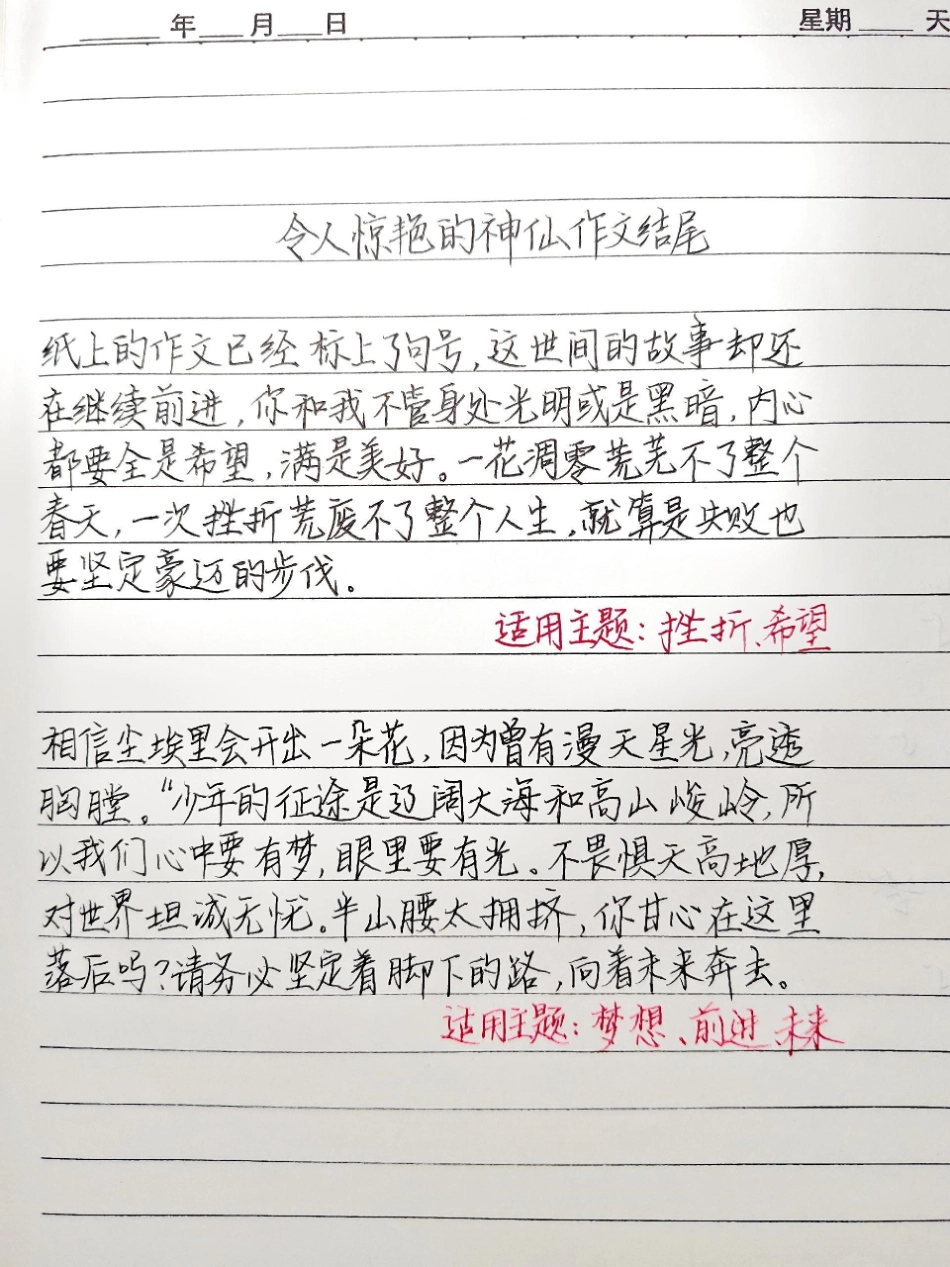 年 月 日 星期 天
令人惊艳的神仙作文结尾
纸上的作文已经标上了句号，这世间的故事却还
在继续前进，你和我不管身处光明或是黑暗，内心
都要全是希望，满是美好。一花凋零荒芜不了整个
春天，一次挫折荒废不了整个人生，就算是失败也
要坚定豪迈的步伐。
适用主题：挫折、希望
相信尘埃里会开出一朵花，因为曾有漫天星光，亮透
胸膛。“少年的征途是辽阔大海和高山峻岭，所
以我们心中要有梦，眼里要有光。不畏惧天高地厚，
对世界坦诚无忧。半山腰太拥挤，你甘心在这里
落后吗？请务必坚定着脚下的路，向着未来奔去。
适用主题：梦想、前进、未来